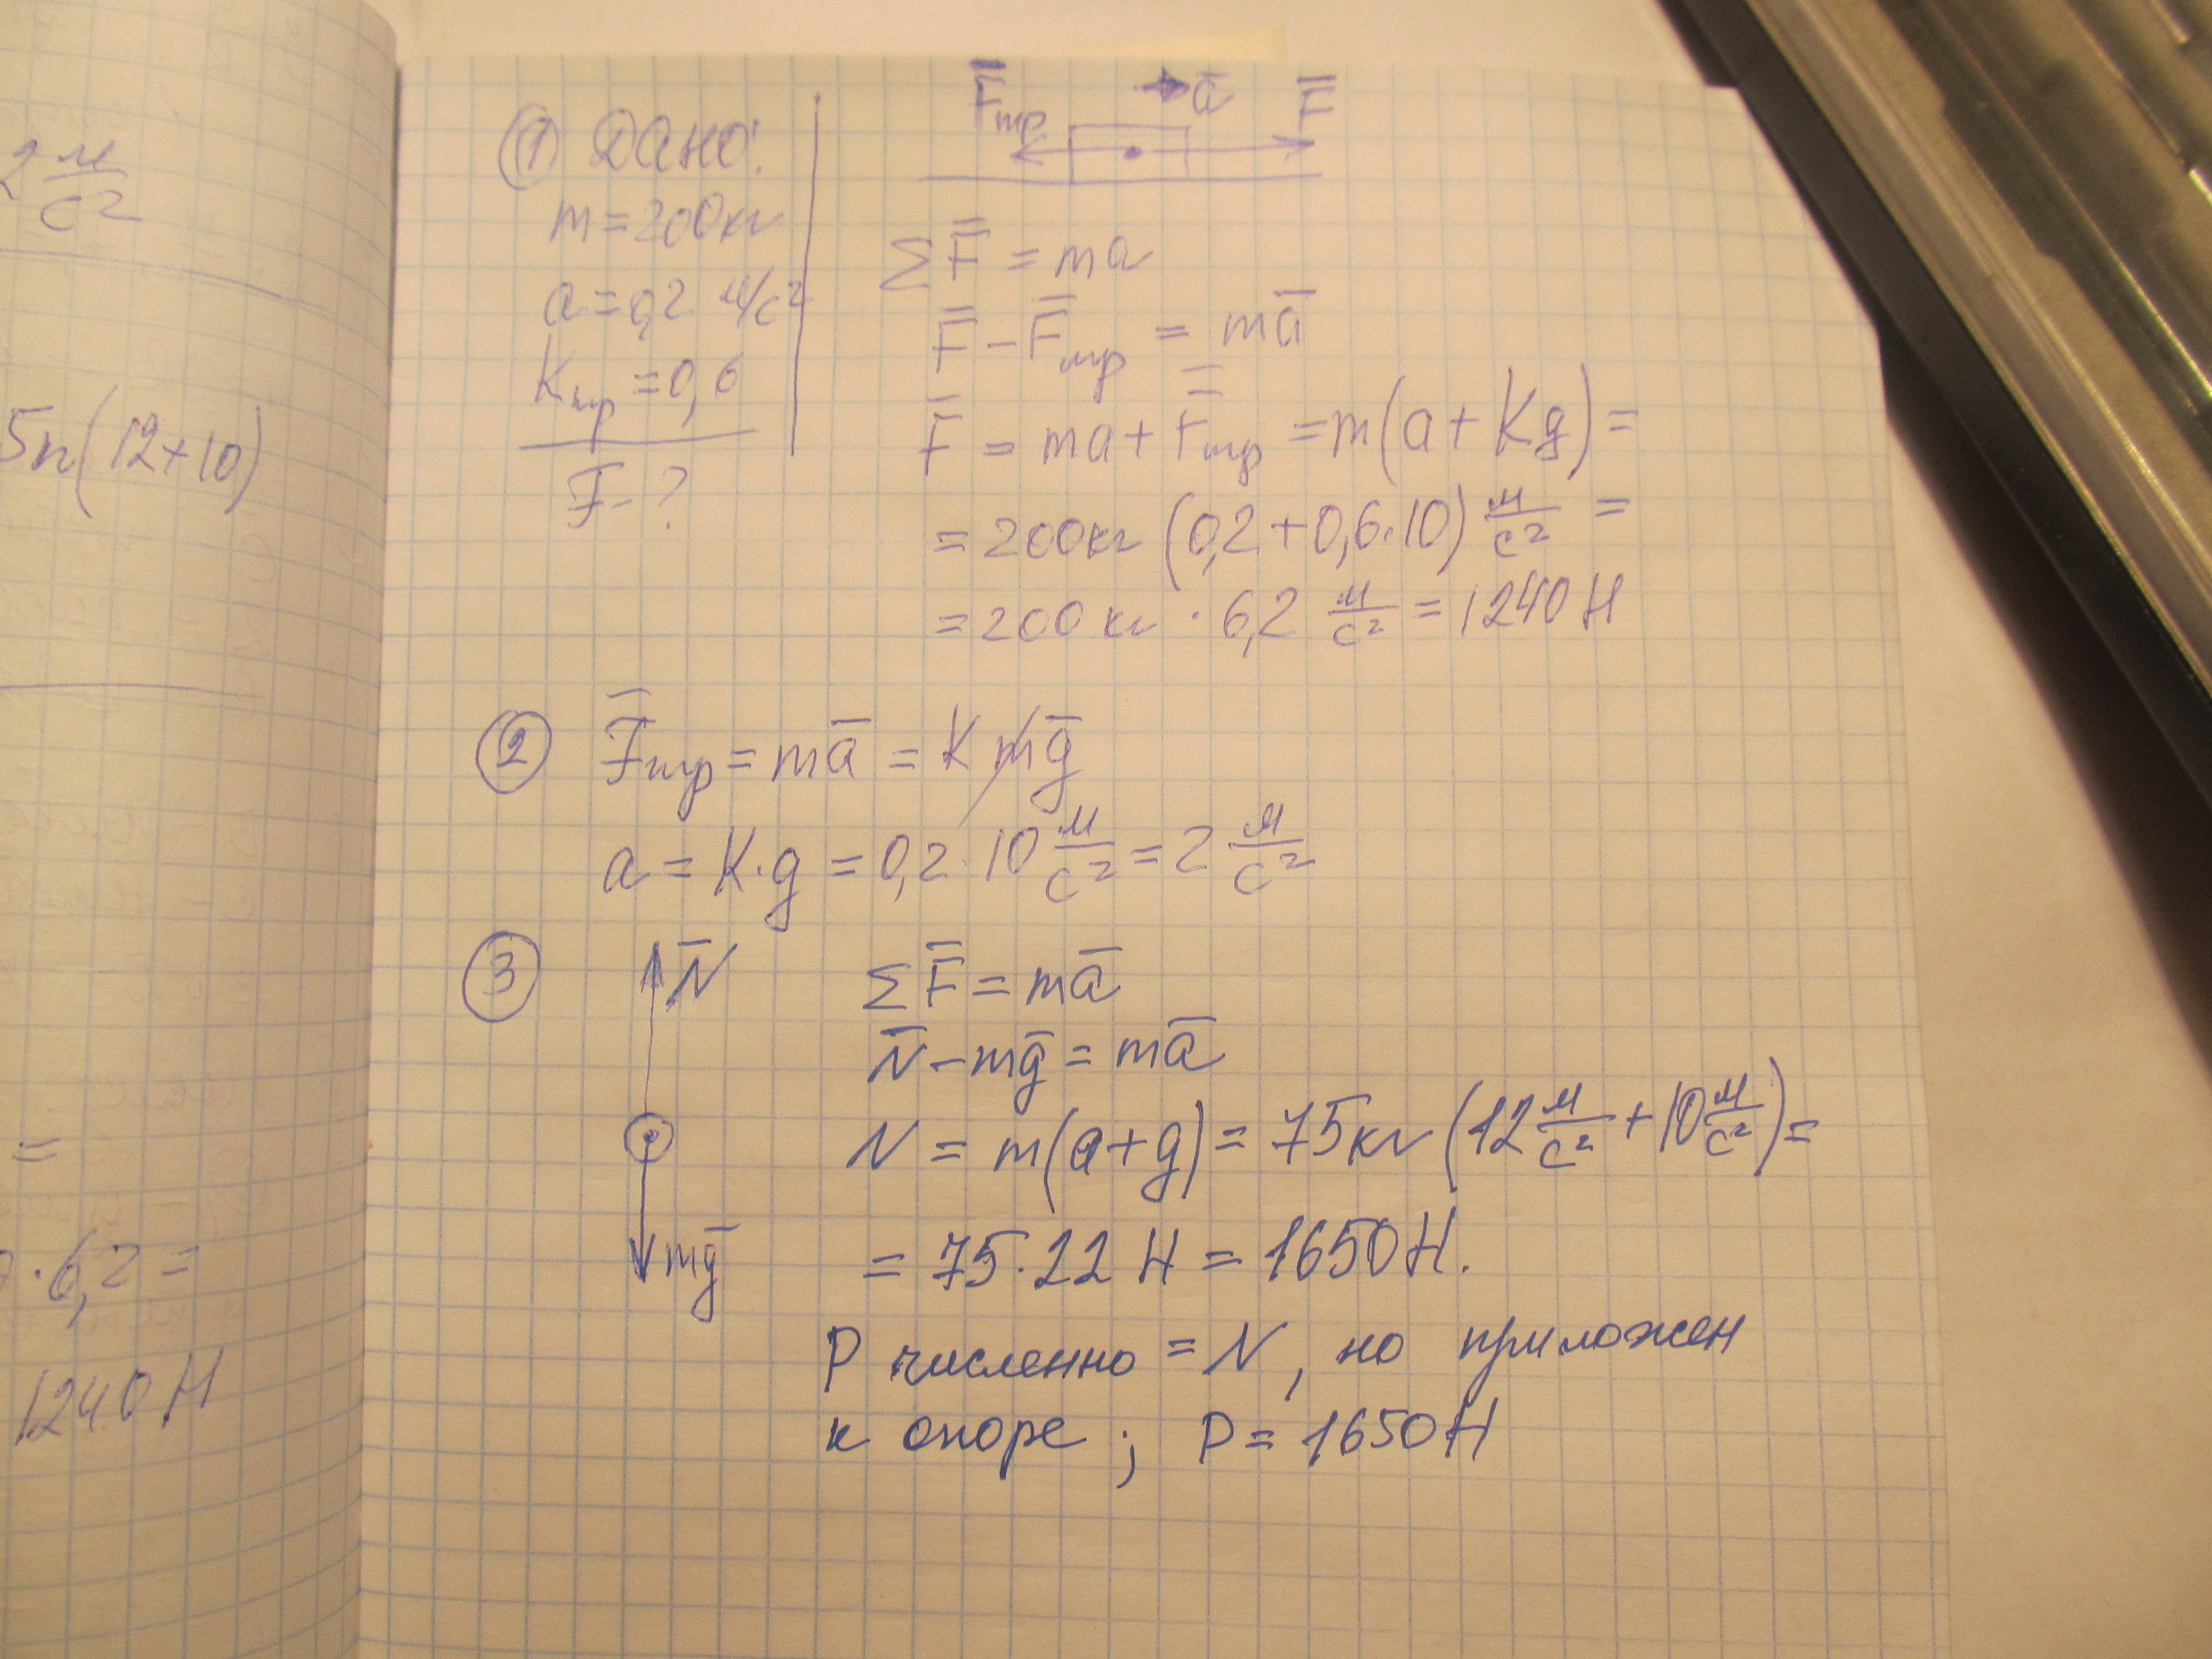 2 м/с²
5п(12+10)
=
·6,2=
1240Н
① Дано:
m=200кг
a=0,2 м/с²
Kтр=0,6
F-?
F̄тр ā F̄
ΣF̄ = ma
F̄-F̄тр = mā
F̄ = ma+F̄тр =m(a+Kg)=
=200кг(0,2+0,6·10) м/с² =
=200кг · 6,2 м/с² = 1240Н
② F̄тр = mā = Kmḡ
a = K·g = 0,2·10 м/с² = 2 м/с²
③ N̄
mḡ
ΣF̄ = mā
N̄-mḡ = mā
N = m(a+g) = 75кг(12 м/с² + 10 м/с²)=
= 75·22 Н = 1650Н.
P численно = N, но приложен
к опоре; P = 1650Н